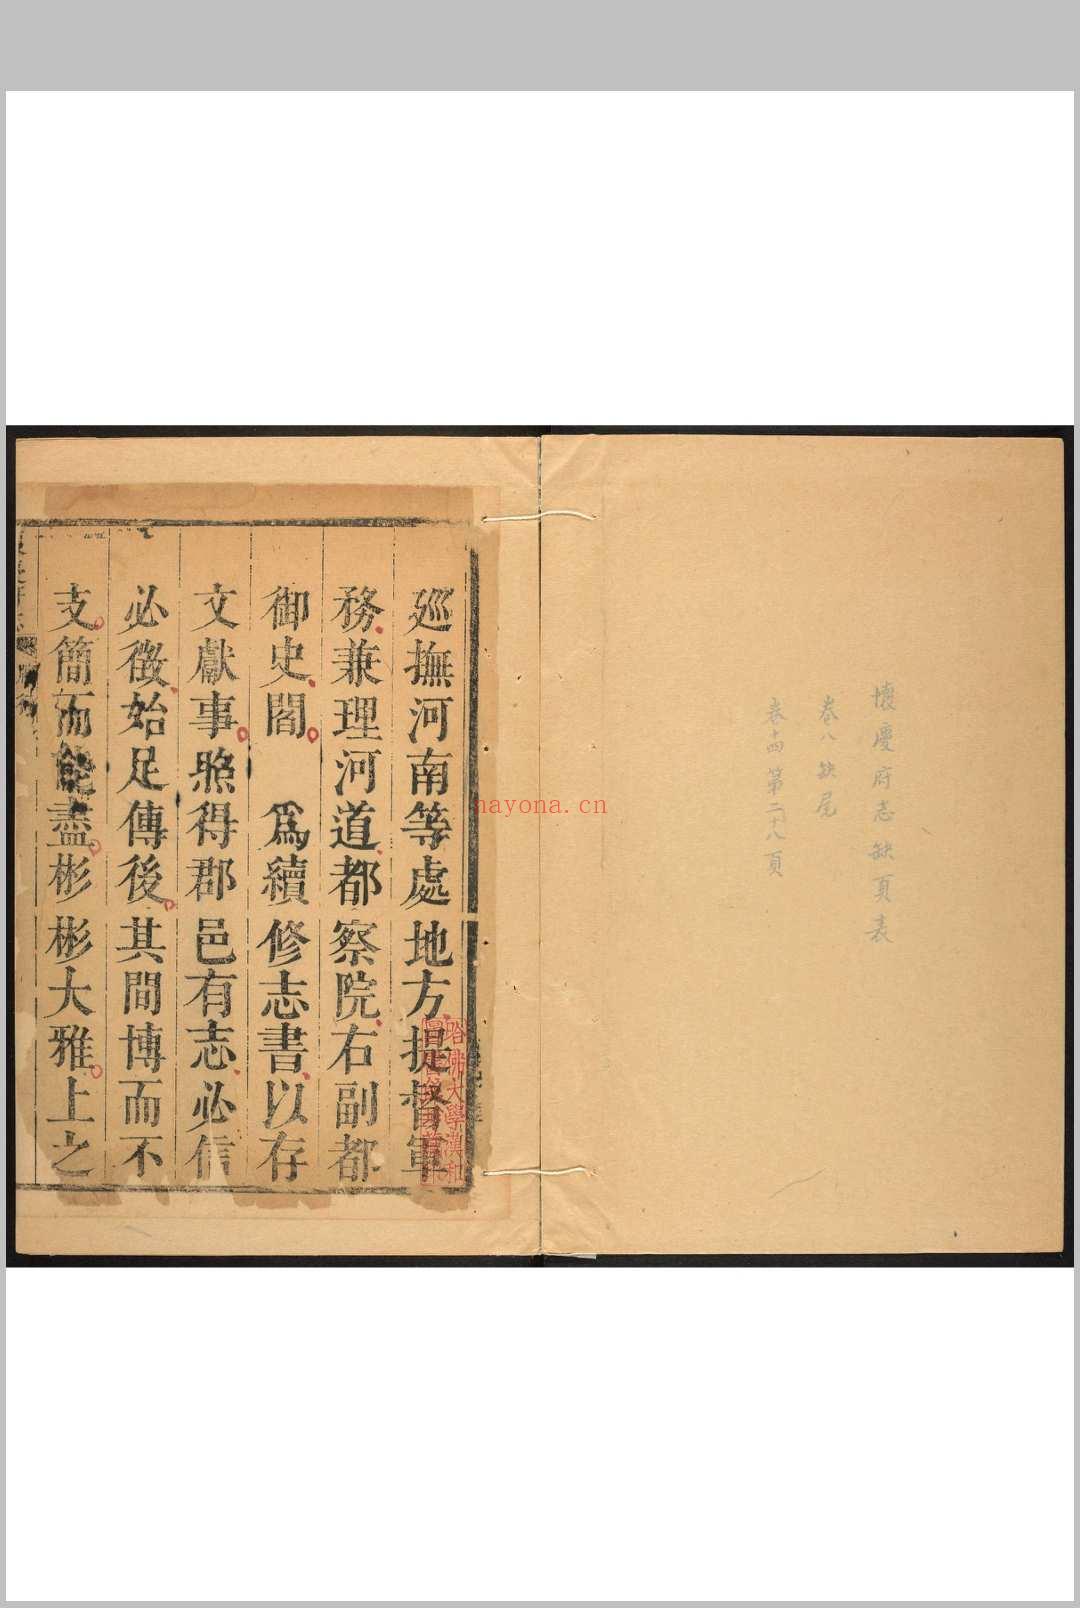 懷慶府志缺頁表
卷八缺尾
卷十四第二十八頁
廵撫河南等處地方提督軍
務兼理河道都察院右副都
御史閻 爲續修志書以存
文獻事照得郡邑有志必信
必徵始足傳後其間博而不
支簡而能盡彬彬大雅上之
哈佛大學漢和
nayona.cn